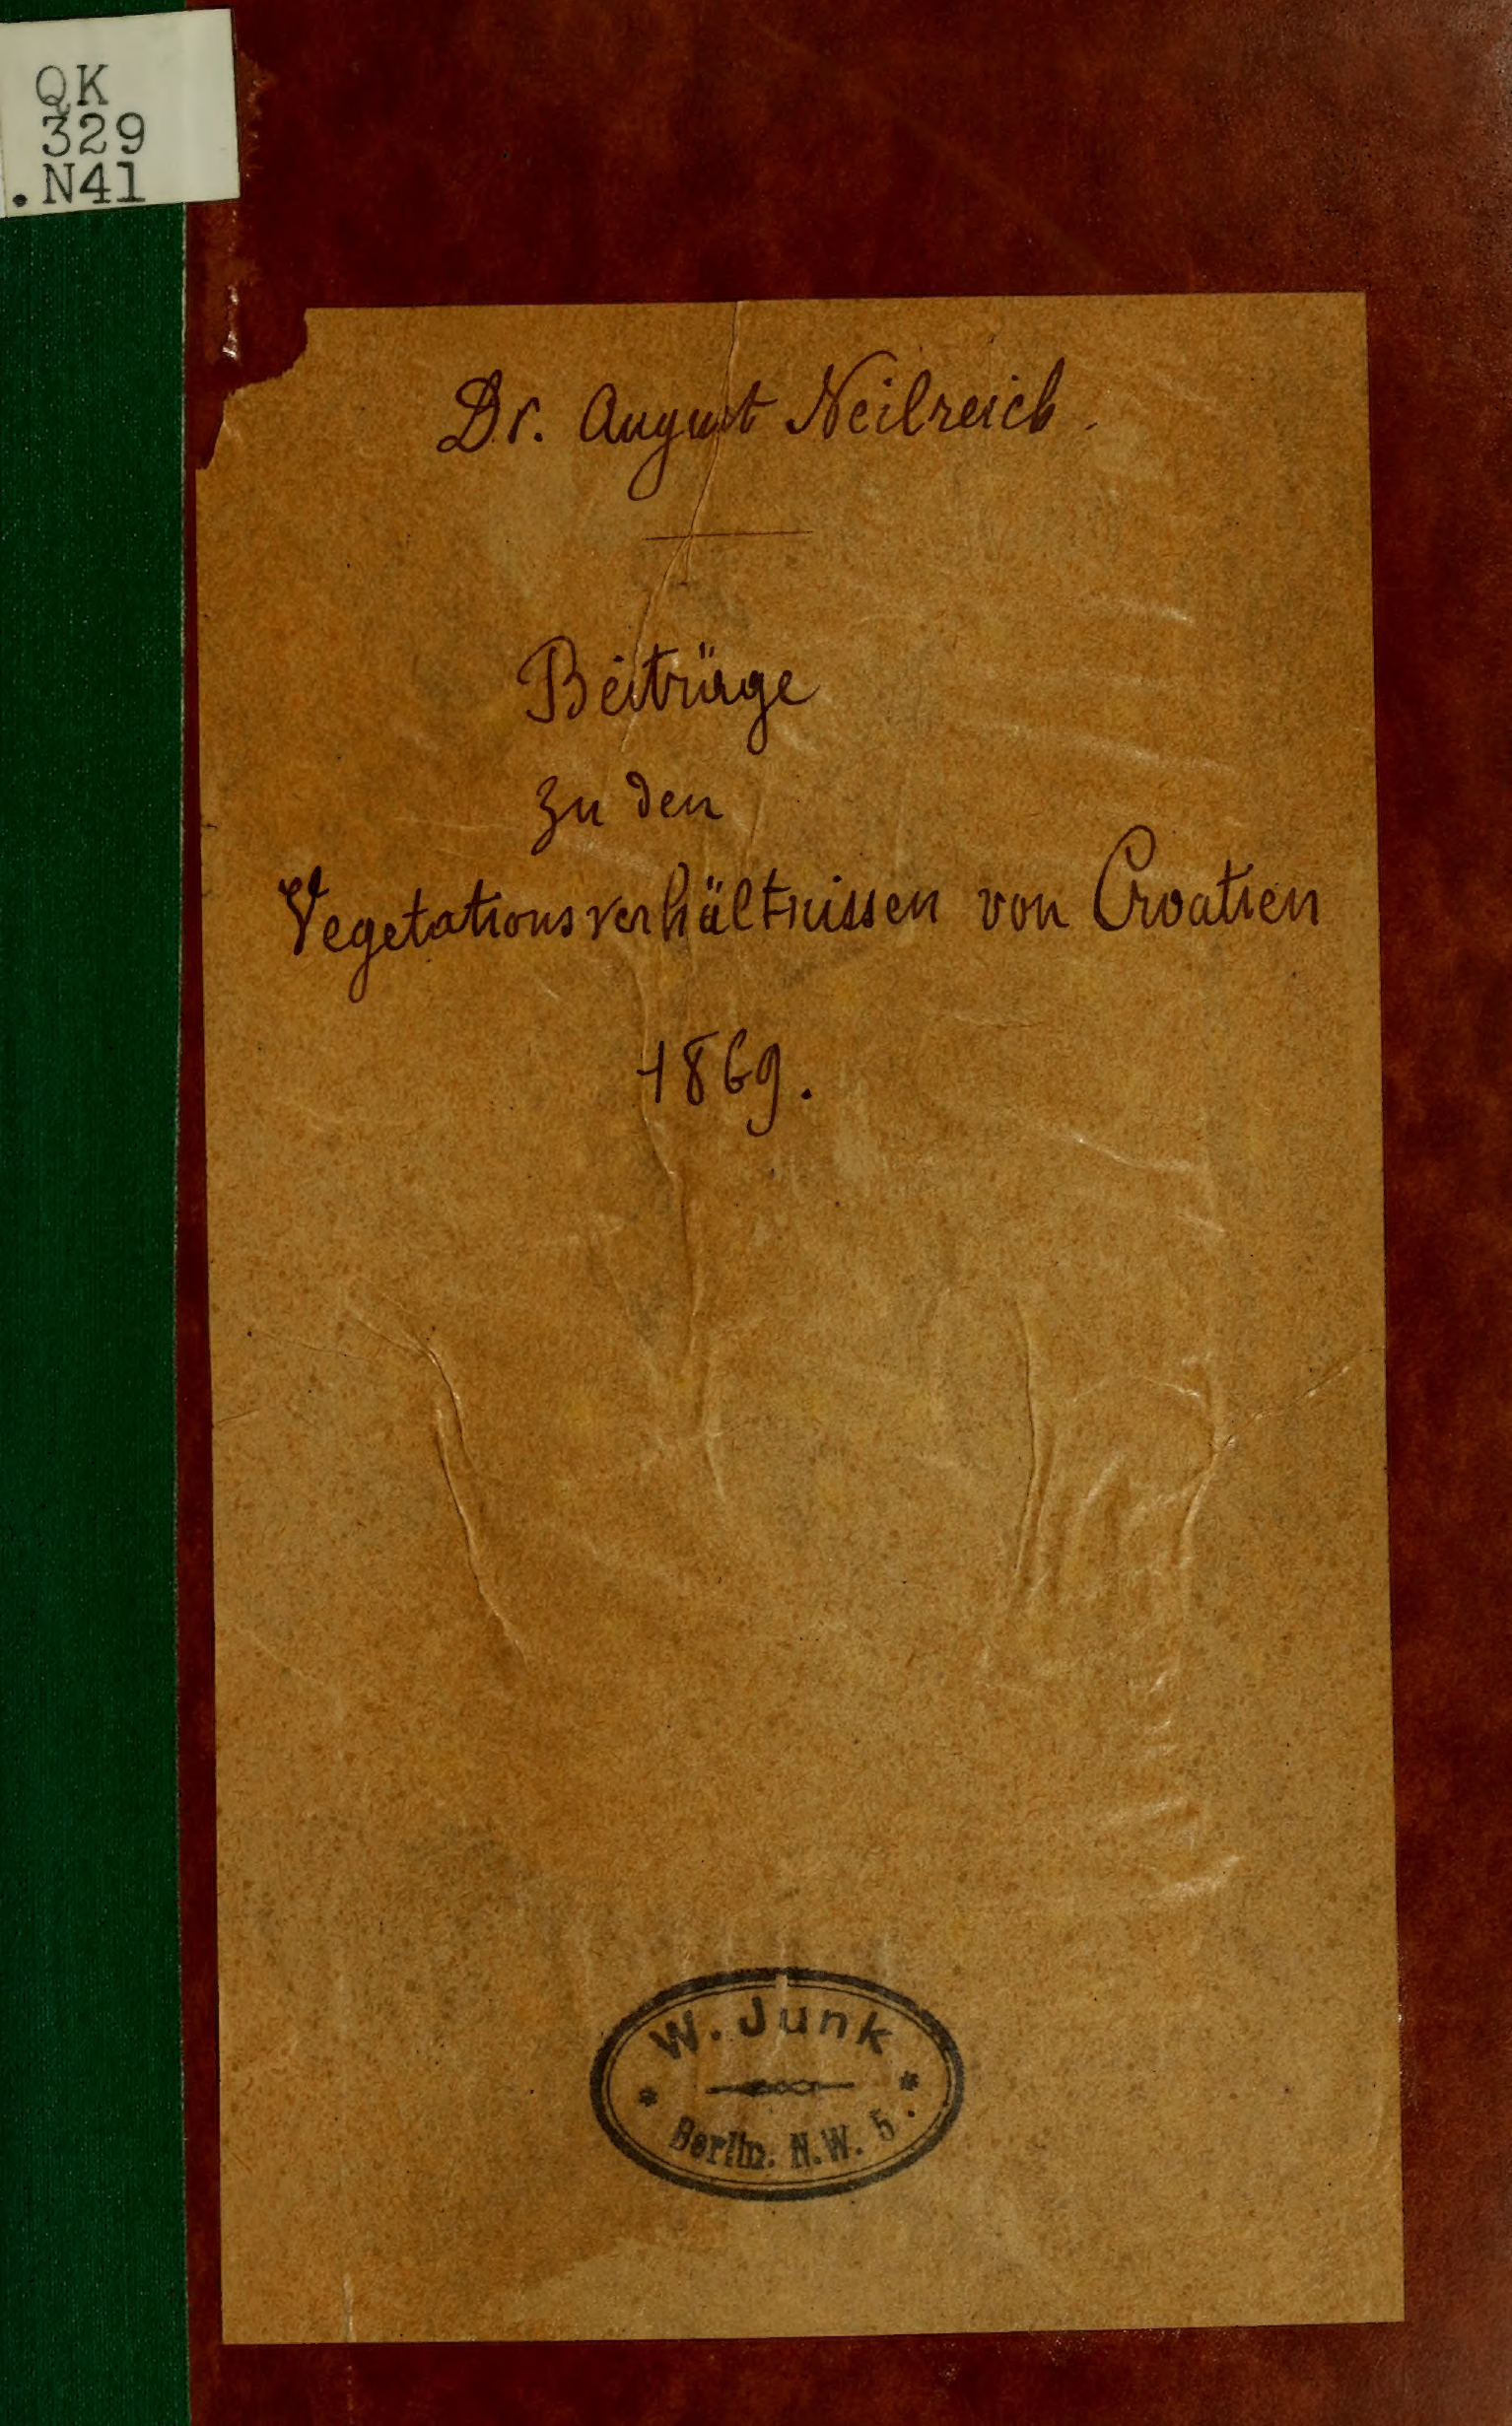 QK
329
.N41
Dr. August Neilreich.
Beiträge
zu den
Vegetationsverhältnissen von Croatien
1869.
W. Junk
Berlin. N.W. 5.